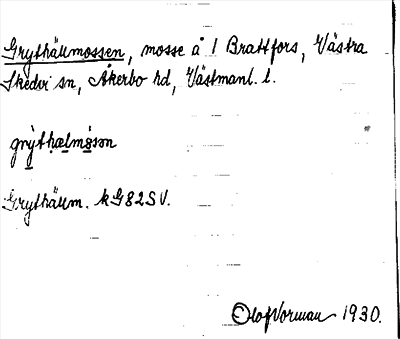 Grythällmossen, mosse å 1 Brattfors, Västra
Skedvi sn, Åkerbo hd, Västmanl. l.
grỳthælmåsən
Grythällm. kG82SV.
Olof Vorman 1930.